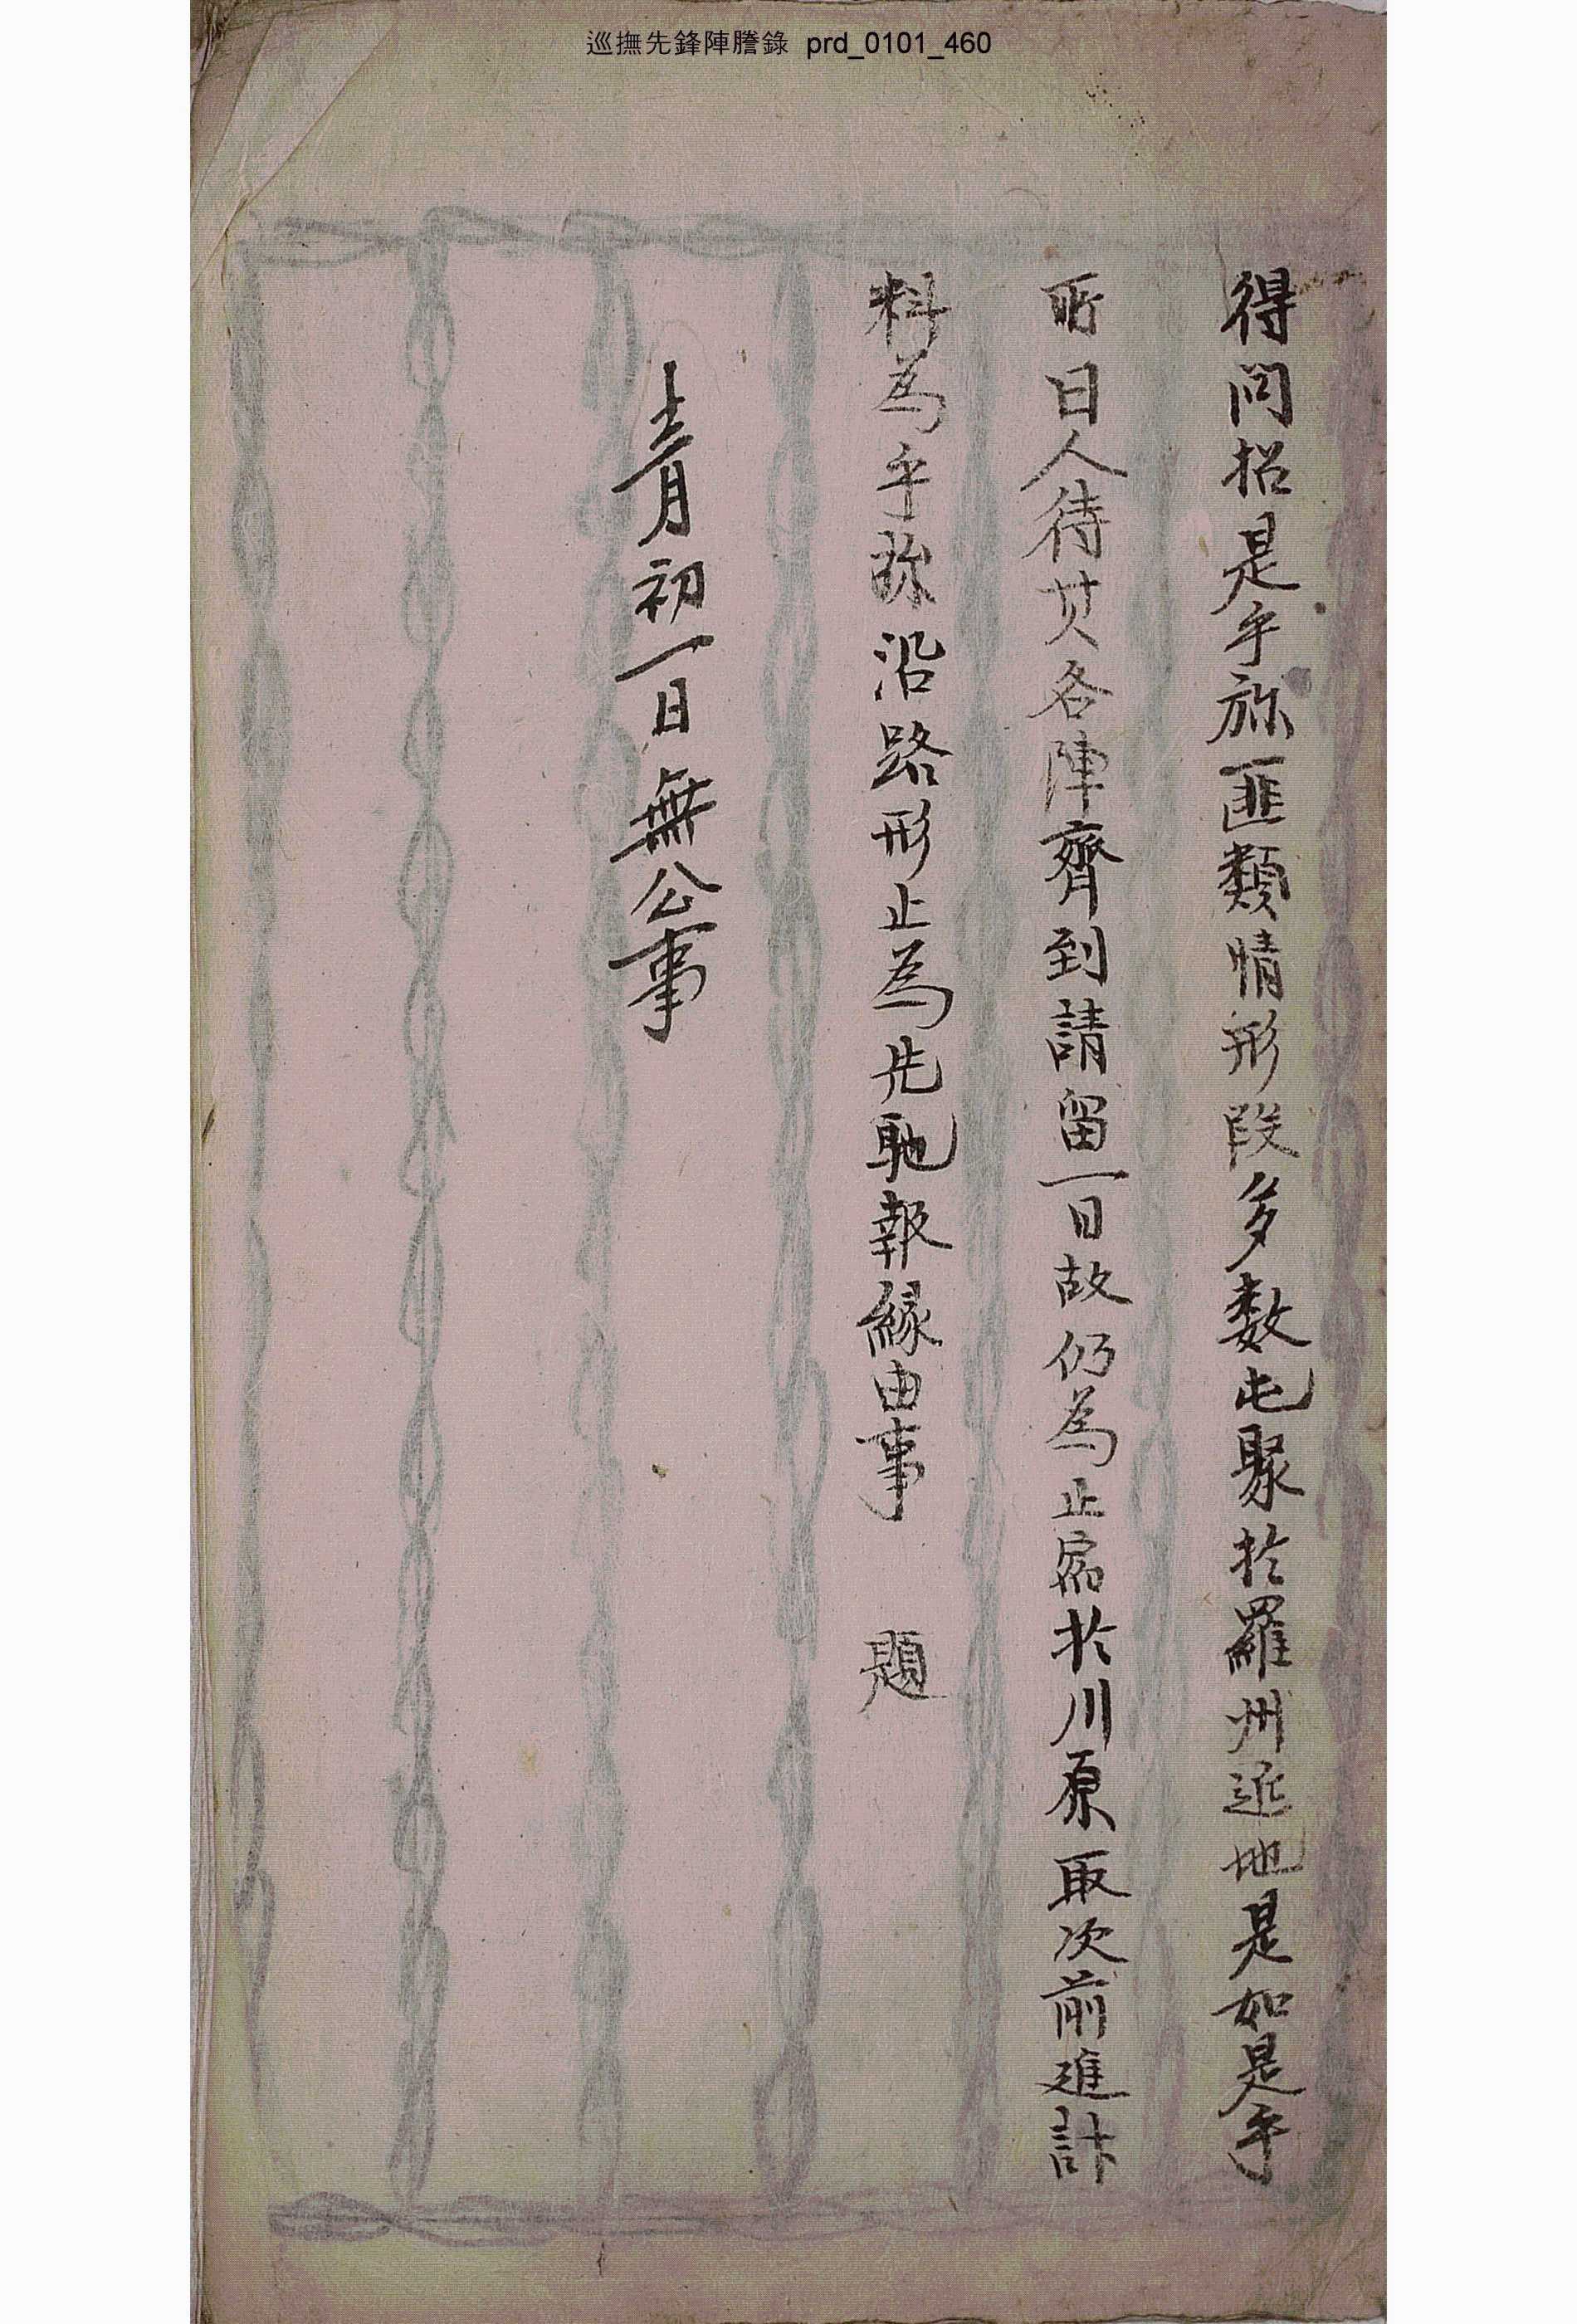 巡撫先鋒陣謄錄 prd_0101_460
得問招是乎旀匪類情形段多數屯聚於羅州近地是如是乎
所日人待其各陣齊到請留一日故仍為止宿於川原取次前進計
料為乎旀沿路形止為先馳報緣由事 題
十二月初一日無公事